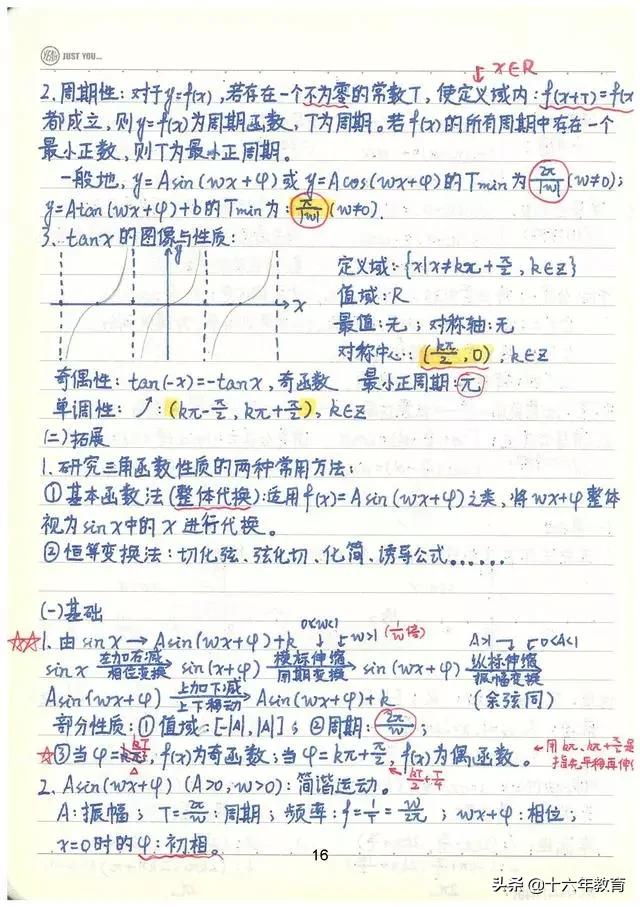 YEAH JUST YOU...
x∈R
2.周期性:对于y=f(x),若存在一个不为零的常数T,使定义域内:f(x+T)=f(x
都成立,则y=f(x)为周期函数,T为周期。若f(x)的所有周期中存在一个
最小正数,则T为最小正周期。
一般地,y=Asin(wx+φ)或y=Acos(wx+φ)的Tmin为2π/|w|(w≠0);
y=Atan(wx+φ)+b的Tmin为:π/|w|(w≠0).
3.tanx的图像与性质:
y
x
定义域:{x|x≠kπ+π/2,k∈Z}
值域:R
最值:无;对称轴:无
对称中心:(kπ/2,0),k∈Z
奇偶性:tan(-x)=-tanx,奇函数 最小正周期:π
单调性:↗(kπ-π/2,kπ+π/2),k∈Z
(二)拓展
1.研究三角函数性质的两种常用方法:
①基本函数法(整体代换):运用f(x)=Asin(wx+φ)之类,将wx+φ整体
视为sinx中的x进行代换。
②恒等变换法:切化弦、弦化切、化简、诱导公式......
(一)基础
0<w<1 w>1(1/w倍) A>1 0<A<1
1.由sinx→Asin(wx+φ)+k
sinx 左加右减 相位变换→ sin(x+φ) 横标伸缩 周期变换→ sin(wx+φ) 纵标伸缩 振幅变换→
Asin(wx+φ) 上加下减 上下移动→ Asin(wx+φ)+k (余弦同)
部分性质:①值域:[-|A|,|A|];②周期:2π/w;
③当φ=kπ,f(x)为奇函数;当φ=kπ+π/2,f(x)为偶函数。
←用kπ、kπ+π/2是
指先平移再伸
kπ/2+π/4
2.Asin(wx+φ)(A>0,w>0):简谐运动。
A:振幅;T=2π/w:周期;频率:f=1/T=w/2π;wx+φ:相位;
x=0时的φ:初相。
16
头条@十六年教育